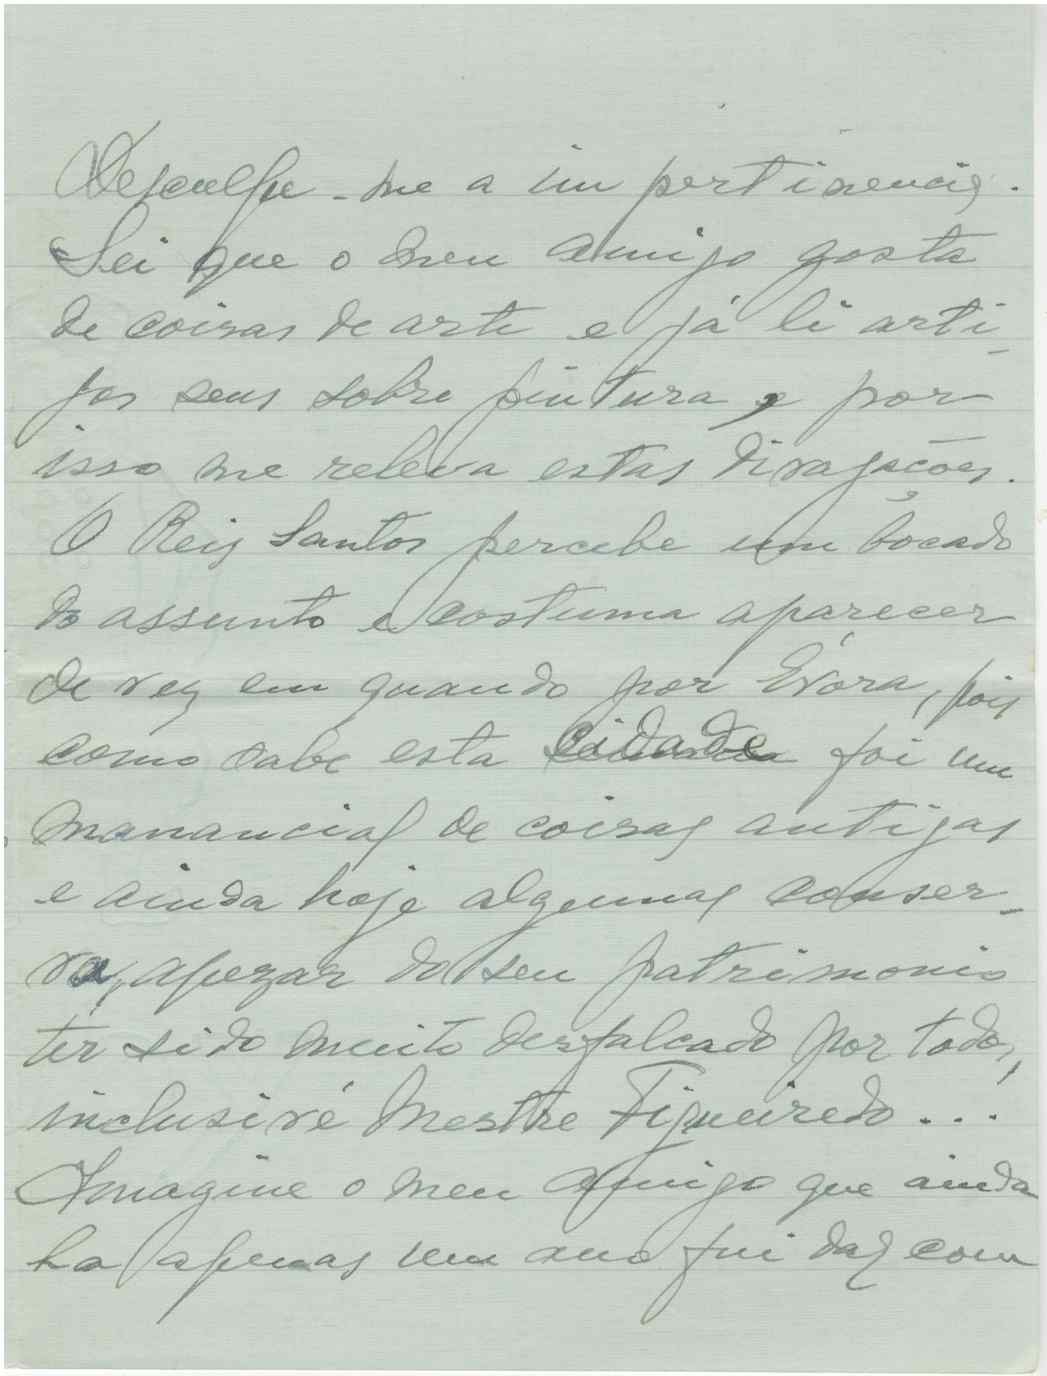 Desculpe-me a impertinencia.
Sei que o meu amigo gosta
de coisas de arte e já li arti-
gos seus sobre pintura, e por-
isso me releva estas divagações.
O Reis Santos percebe um bocado
do assunto e costuma aparecer
de vez em quando por Évora, pois
como sabe esta cidade foi um
manancial de coisas antigas
e ainda hoje algumas conser-
va, apezar do seu patrimonio
ter sido muito desfalcado por todos,
inclusivé Mestre Figueiredo...
Imagine o meu amigo que ainda
ha apenas um ano fui dar com